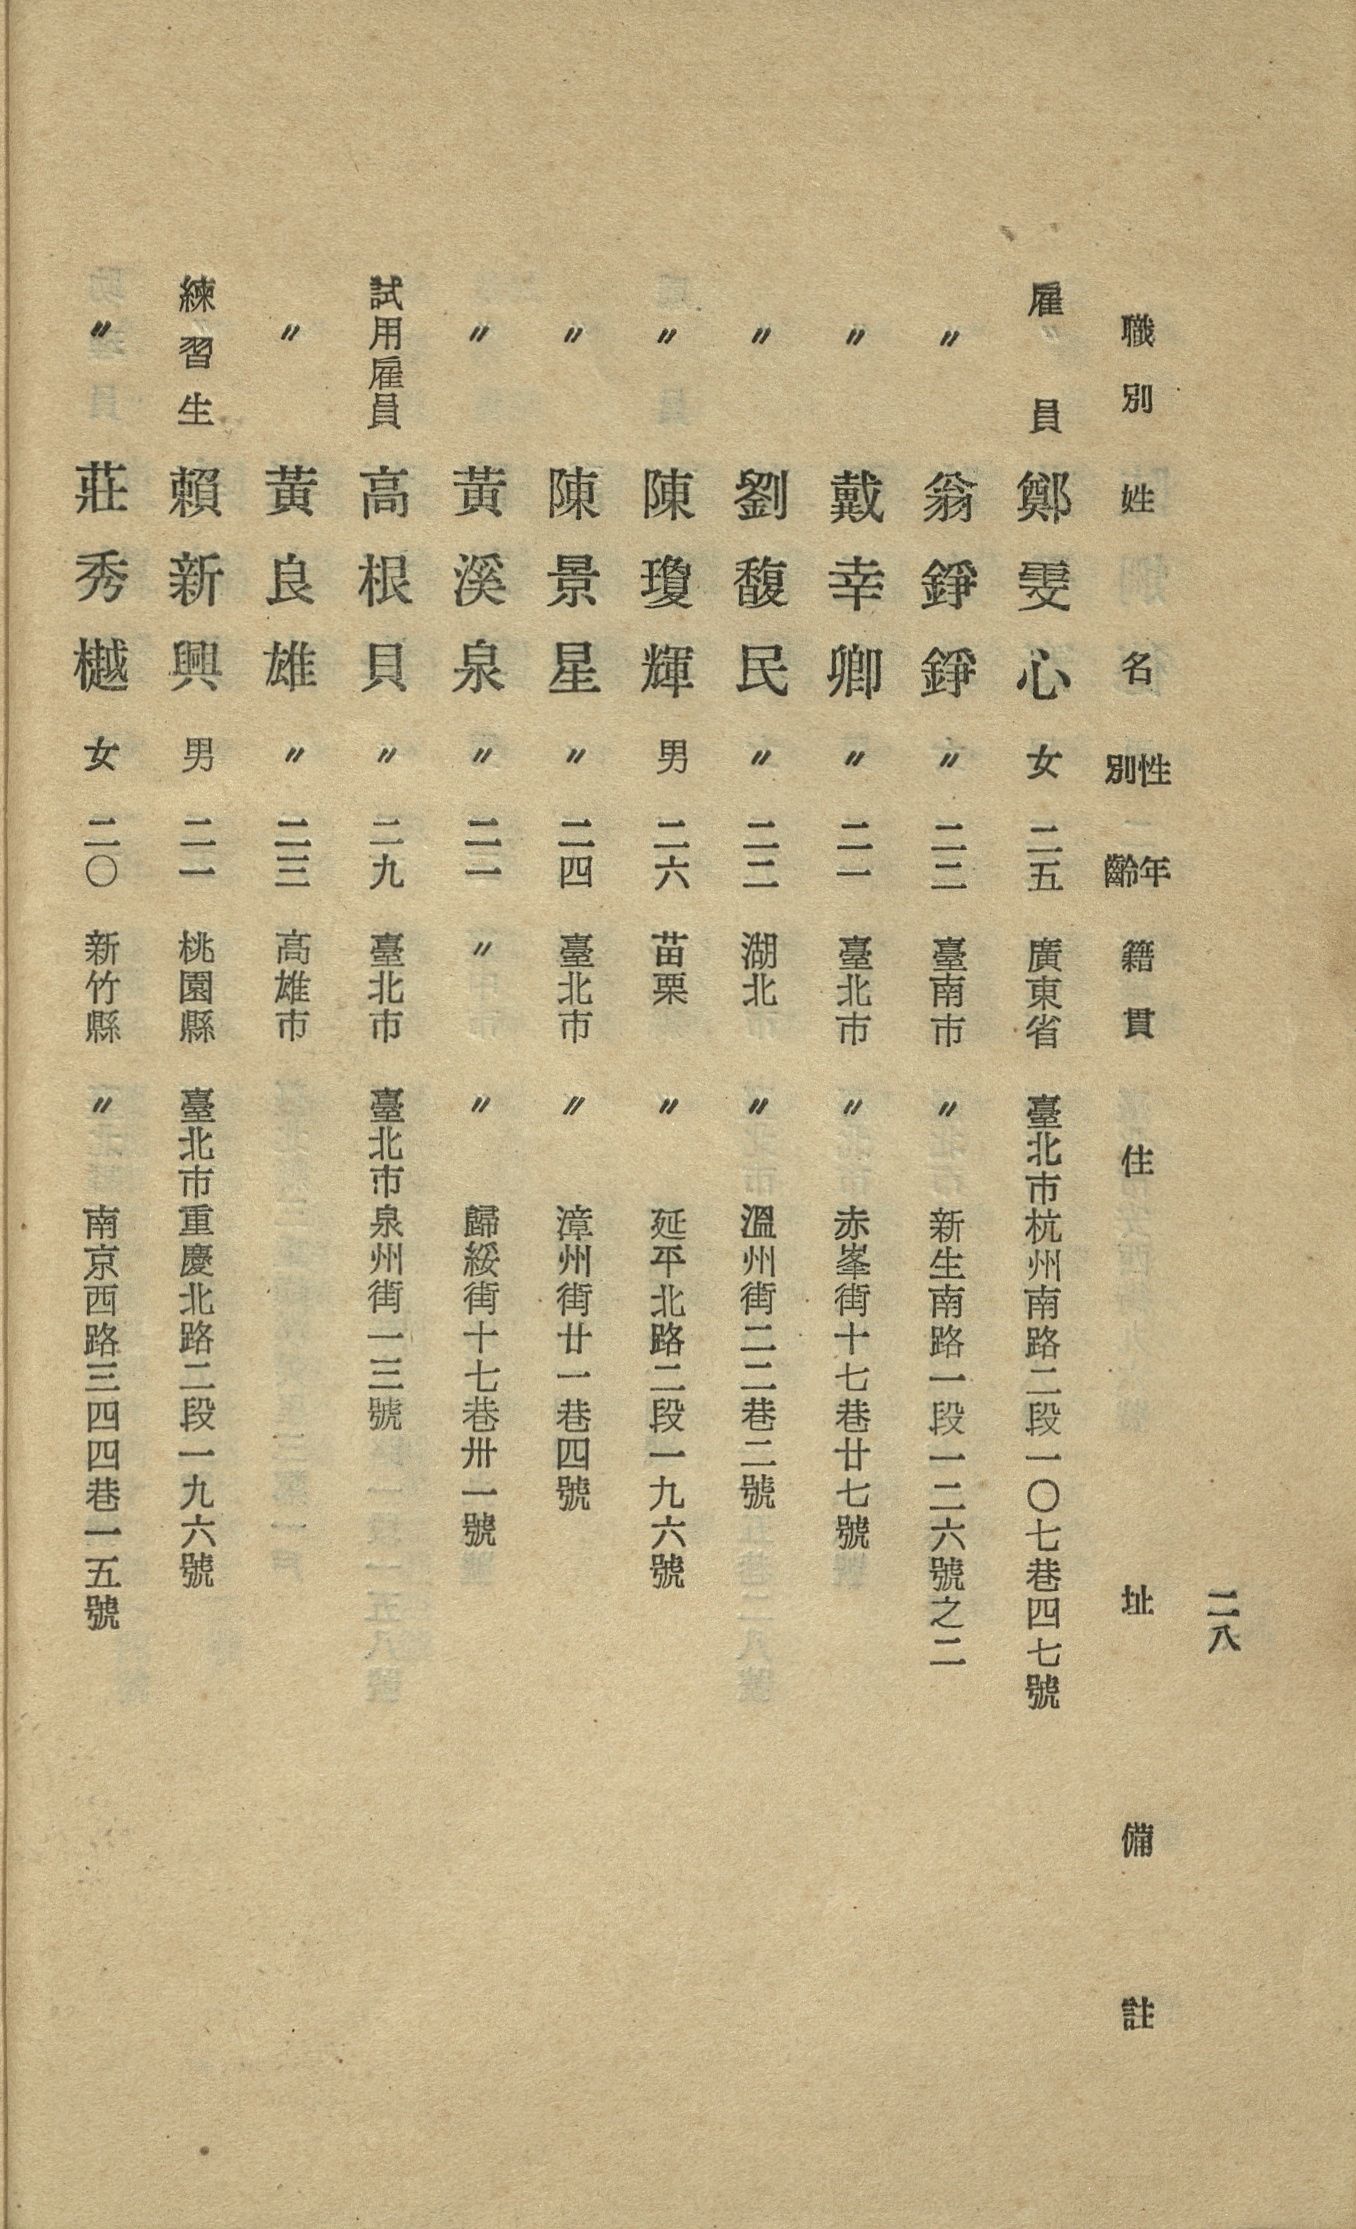 二八
職別 姓名 性別 年齡 籍貫 住址 備註
雇員 鄭雯心 女 二五 廣東省 臺北市杭州南路二段一〇七巷四七號
〃 翁錚錚 〃 二二 臺南市 〃 新生南路一段一二六號之二
〃 戴幸卿 〃 二一 臺北市 〃 赤峯街十七巷廿七號
〃 劉馥民 〃 二二 湖北 〃 溫州街二二巷二號
〃 陳瓊輝 男 二六 苗栗 〃 延平北路二段一九六號
〃 陳景星 〃 二四 臺北市 〃 漳州街廿一巷四號
〃 黃溪泉 〃 二二 〃 〃 歸綏街十七巷卅一號
試用雇員 高根貝 〃 二九 臺北市 臺北市泉州街一三號
〃 黃良雄 〃 二三 高雄市
練習生 賴新興 男 二一 桃園縣 臺北市重慶北路二段一九六號
〃 莊秀樾 女 二〇 新竹縣 〃 南京西路三四四巷一五號